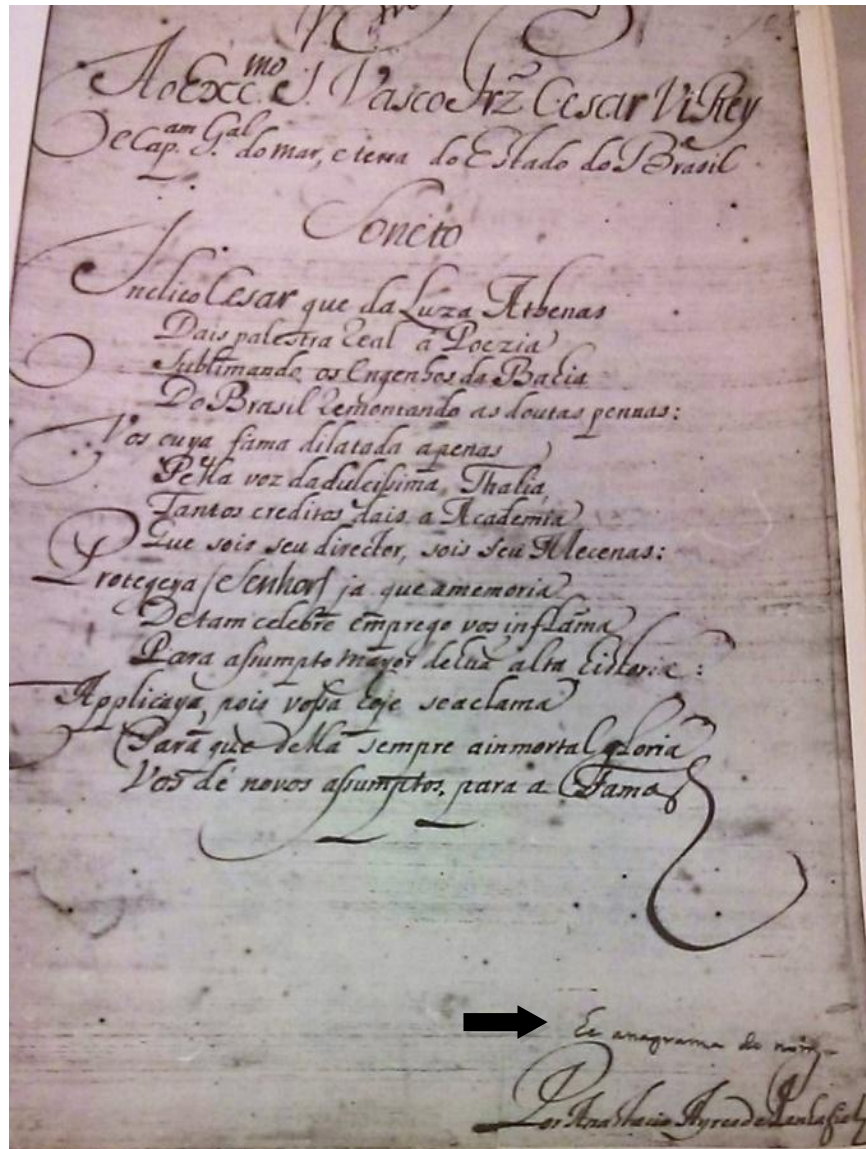 Ao Exc.mo S. Vasco Frz̃ Cesar ViRey
E Cap.am G.al do mar, e terra do Estado do Brasil
Soneto
Inclito Cesar que da Luza Athenas
Dais palestra Real a Poezia
Sublimando os Engenhos da Bahia
Do Brasil Remontando as doutas pennas:
Vos cuya fama dilatada apenas
Pella voz dadulcissima, Thalia,
Tantos creditos dais a Academia
Que sois seu director, sois seu Mecenas:
Protegeya [Senhor] ja que amemoria
Detam celebre emprego vos inflama
Para assumpto mayor desua alta historia:
Applicaya, pois vossa hoje seaclama
Para que della sempre ainmortal gloria
Vos dé novos assumptos, para a Fama
He anagrama do nome
Por Anastacio Ayres de Penhafiel